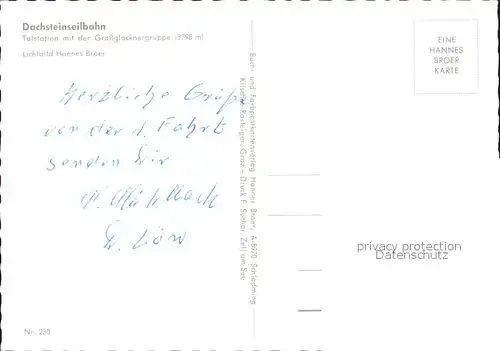 Dachsteinseilbahn
Talstation mit der Großglocknergruppe (3798 m)
Lichtbild Hannes Broer
EINE
HANNES
BROER
KARTE
Herzliche Grüße
von der Fahrt
senden wir
Löw
Buch- und Fachpostkartenverlag Hannes Broer, A-8970 Schladming
Klischee Rosteiger, Graz – Druck F. Sochor, Zell am See
privacy protection
Datenschutz
Nr. 230